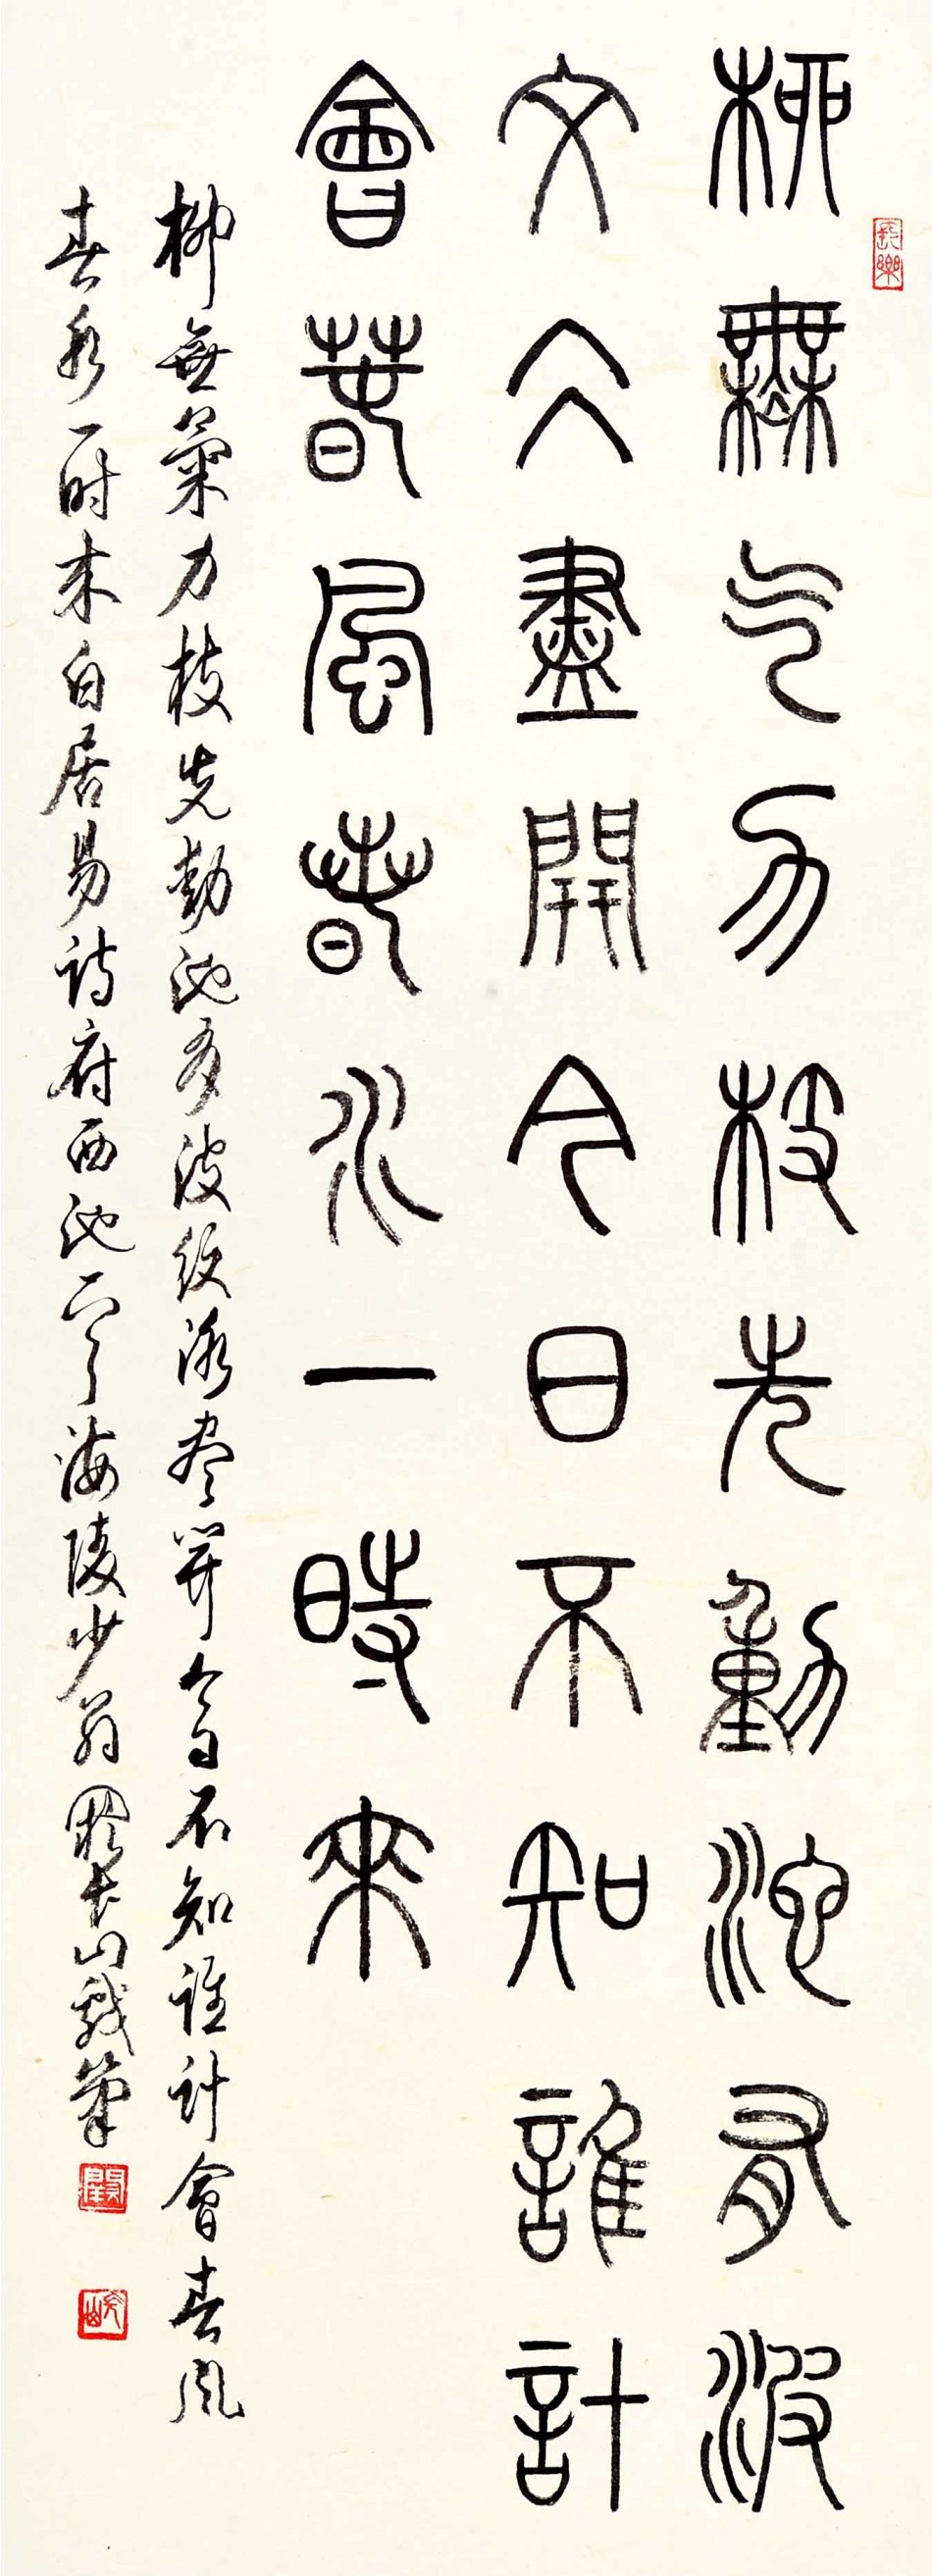 柳無气力枝先動池有波
文仌盡開今日不知誰計
會春風春水一時來
柳無氣力枝先動池有波紋冰尽開今日不知誰計會春風
春水一时来白居易诗府西池一首海陵少翁
戏筆